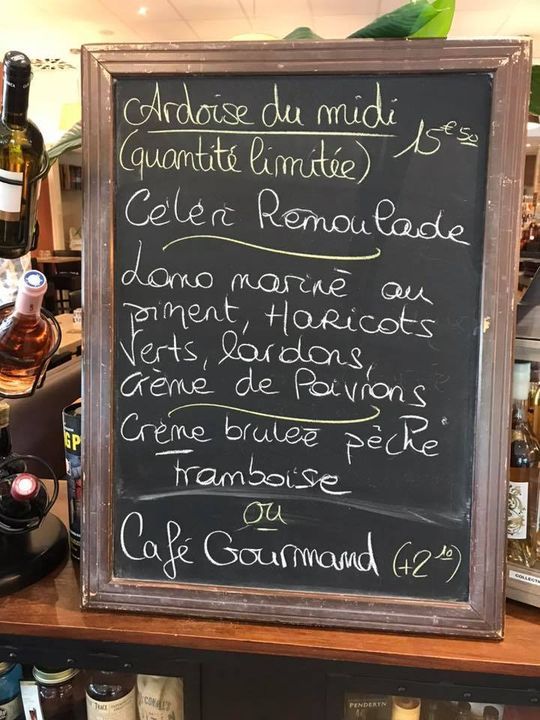 Ardoise du midi
15€50
(quantité limitée)
Céleri Rémoulade
Lomo mariné au
piment, Haricots
verts, lardons,
Crème de Poivrons
Crème brulée pêche
framboise
ou
Café Gourmand (+2€10)
GP
COLLECTI
PENDERYN